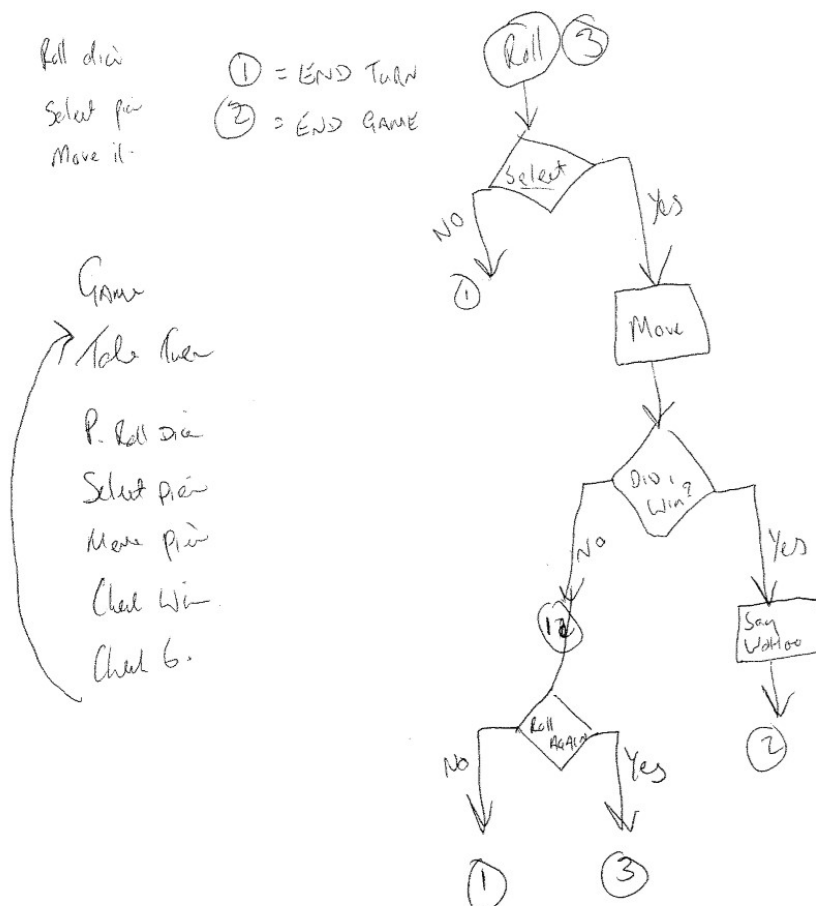 Roll dice
Select piece
Move it.
① = END TURN
② = END GAME
GAME
Take Turn
P. Roll Dice
Select piece
Move piece
Check Win
Check 6.
Roll
③
Select
NO
Yes
①
Move
DID I
WIN?
NO
Yes
Say
WAHOO
②
Roll
AGAIN
NO
Yes
①
③